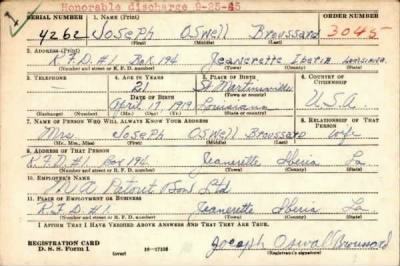 Honorable discharge 9-25-45
SERIAL NUMBER 1. NAME (Print) ORDER NUMBER
4262 Joseph Oswell Broussard 3045
(First) (Middle) (Last)
2. ADDRESS (Print)
R.F.D. #1 Box 194 Jeanerette Iberia Louisiana
(Number and street or R. F. D. number) (Town) (County) (State)
3. TELEPHONE 4. AGE IN YEARS 5. PLACE OF BIRTH 6. COUNTRY OF CITIZENSHIP
21 St. Martinville
DATE OF BIRTH
April 17 1919 Louisiana U.S.A.
(Exchange) (Number) (Mo.) (Day) (Yr.) (State or country)
7. NAME OF PERSON WHO WILL ALWAYS KNOW YOUR ADDRESS 8. RELATIONSHIP OF THAT PERSON
Mrs Joseph Oswell Broussard wife
(Mr., Mrs., Miss) (First) (Middle) (Last)
9. ADDRESS OF THAT PERSON
R.F.D. #1 Box 194 Jeanerette Iberia La
(Number and street or R. F. D. number) (Town) (County) (State)
10. EMPLOYER'S NAME
M A Patout & Son Ltd
11. PLACE OF EMPLOYMENT OR BUSINESS
R.F.D. #1 Jeanerette Iberia La.
(Number and street or R. F. D. number) (Town) (County) (State)
I AFFIRM THAT I HAVE VERIFIED ABOVE ANSWERS AND THAT THEY ARE TRUE.
REGISTRATION CARD
D. S. S. Form 1 Joseph Oswal Broussard
(over) (Registrant's signature)